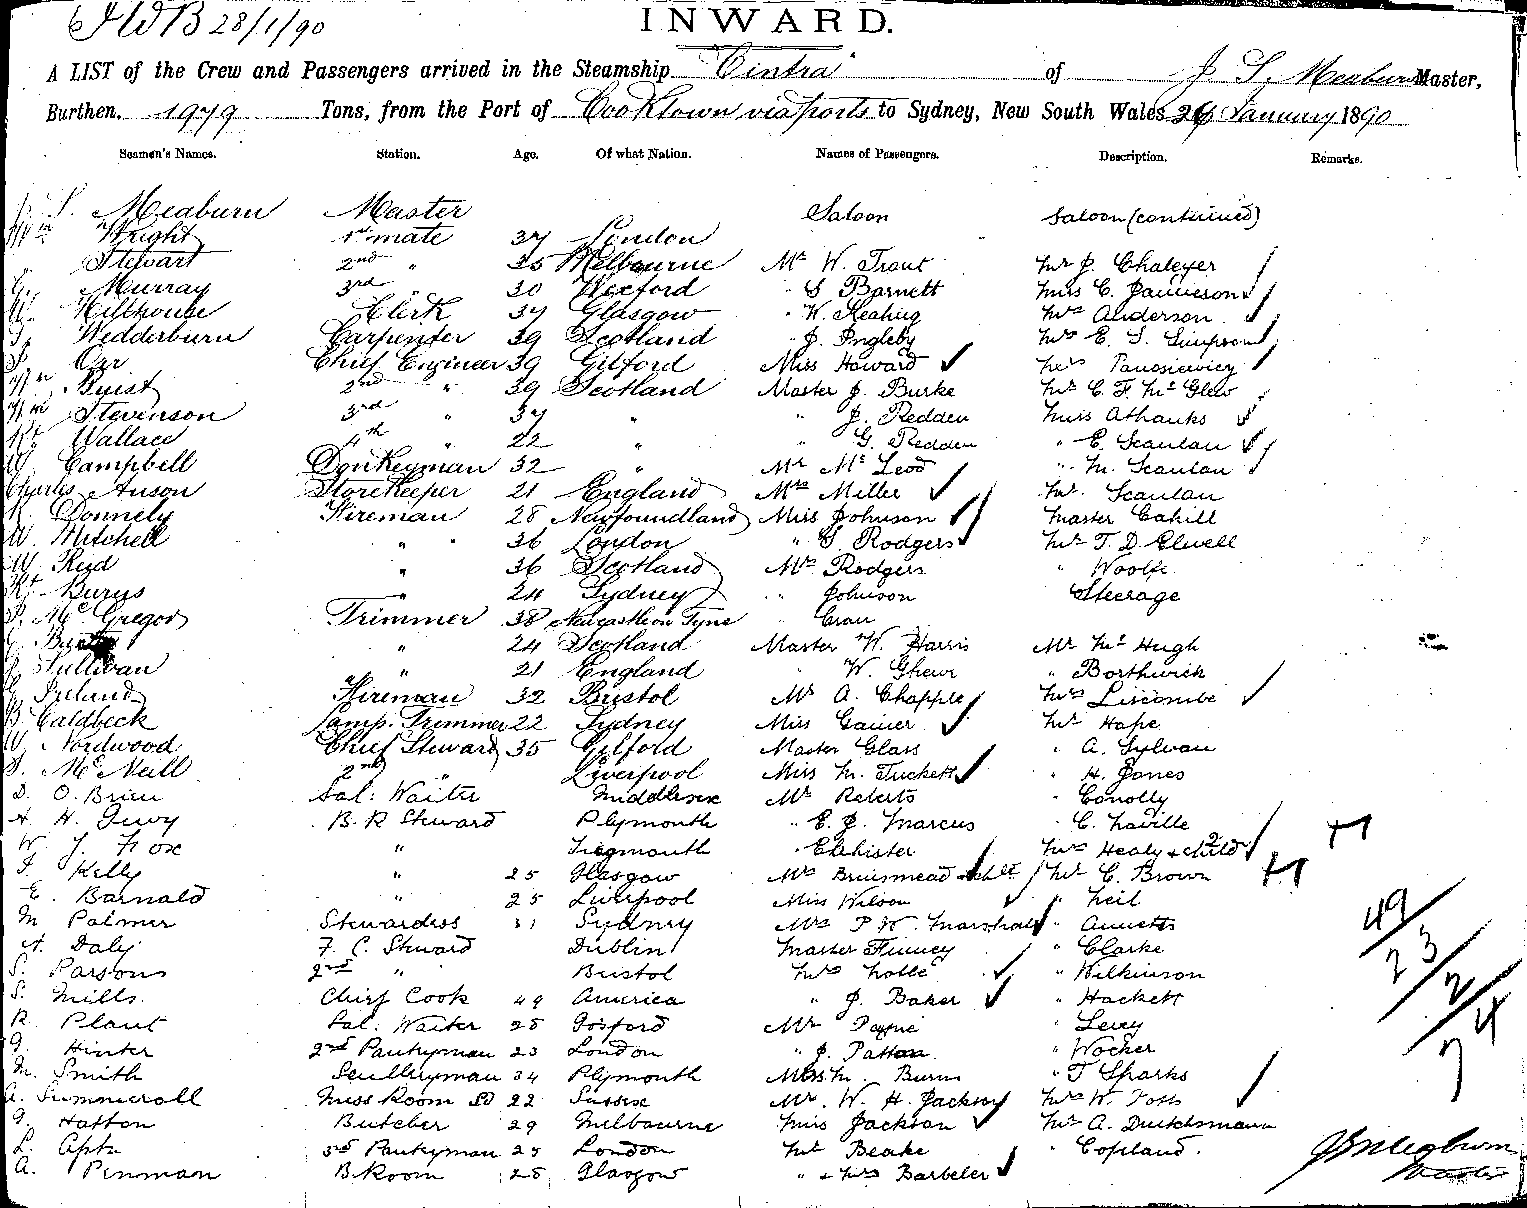 HWB 28/1/90
INWARD.
A LIST of the Crew and Passengers arrived in the Steamship "Cintra" of J S. Meaburn Master,
Burthen. 1979 Tons, from the Port of Cooktown via ports to Sydney, New South Wales 26 January 1890
Seamen's Names. Station. Age. Of what Nation. Names of Passengers. Description. Remarks.
S. Meaburn Master Saloon Saloon (continued)
Wm Wright 1st mate 37 London
Stewart 2nd " 35 Melbourne Mr W. Trout Mr J. Chaleyer
Murray 3rd 30 Wexford " S Barnett Miss C. Jamieson
Milthouse Clerk 37 Glasgow " W. Keating Mrs Anderson
Wedderburn Carpenter 39 Scotland " J. Ingleby Mrs E. S. Simpson
Orr Chief Engineer 39 Gilford Miss Howard Mrs
Wm Buist 2nd " 39 Scotland Master J. Burke Mr C. F. Mc Glew
Wm Stevenson 3rd " 37 " " J. Redden Miss Athanks
Rt Wallace 4th " 22 " " G. Redden " E. Scanlan
Campbell Donkeyman 32 " Mr Mc Leod " M. Scanlan
Charles Anson Storekeeper 21 England Mrs Miller Mr. Scanlan
Donnely Fireman 28 Newfoundland Miss Johnson Master Cahill
W. Mitchell " " 36 London " S. Rodgers Mr T. D. Elwell
W. Reid " 36 Scotland Mr Rodgers " Woolfe
Rt Burns " 24 Sydney " Johnson Steerage
P. Mc Gregor Trimmer 38 Newcastle on Tyne " Crau
" 24 Scotland Master W. Harris Mr Mc Hugh
Sullivan " 21 England " W. Ghewr " Borthwick
Ireland Fireman 32 Bristol Mr A. Chapple Mrs Liscombe
B. Caldbeck Lamp Trimmer 22 Sydney Miss Gainer Mr Hope
W. Nordwood Chief Steward 35 Gilford Master Glass " A. Sylvan
S. Mc Neill 2nd " Liverpool Miss M. Tuckett " H. Jones
D. O. Brien Sal: Waiter Middlesex Mr Roberts " Conolly
A. H. Guvy B. R Steward Plymouth " E. J. Marcus " C. Laville
W. J. Fox " Tiegmouth " Mrs Healy & child 2
F. Kelly " 25 Glasgow Mrs Bruismead & chld. Mr C. Brown
E. Barnald " 25 Liverpool Miss Wilson " Neil
M Palmer Stewardess 31 Sydney Mrs P W. Marshall " Annetts
A. Daly F. C. Steward Dublin Master Finney " Clarke
S. Parsons 2nd " " Bristol Mrs Nolle " Wilkinson
S. Mills. Chief Cook 49 America " J. Baker " Hackett
R. Plant Sal. Waiter 28 Gosford Mr Payne " Levey
G. Hinter 2nd Pantryman 23 London " J. Patton " Wocher
M. Smith Sculleryman 34 Plymouth Miss M. Burns " T Sparks
A. Summeroll Mess Room Sd 22 Sussex Mr. W. H. Jackson Mrs W. Voss
G. Hatton Butcher 29 Melbourne Miss Jackson Mr A. Dutchsmann
L. Apts 3rd Pantryman 25 London Mr Beake " Copeland.
A. Penman B. Room 28 Glasgow " & Mrs Barbeler
49
23
2
74
JS Meaburn
Master